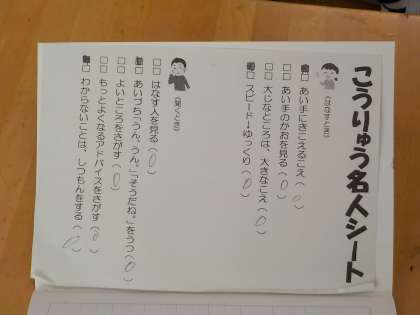 こうりゅう名人シート
(はなすとき)
□□ あい手にきこえるこえ(○)
□□ あい手のかおを見る(○)
□□ 大じなところは、大きなこえ(○)
□□ スピード→ゆっくり(○)
(聞くとき)
□□ はなす人を見る(○)
□□ あいづち「うん、うん。」「そうだね。」をうつ(○)
□□ よいところをさがす(○)
□□ もっとよくなるアドバイスをさがす(○)
□□ わからないことは、しつもんをする(○)